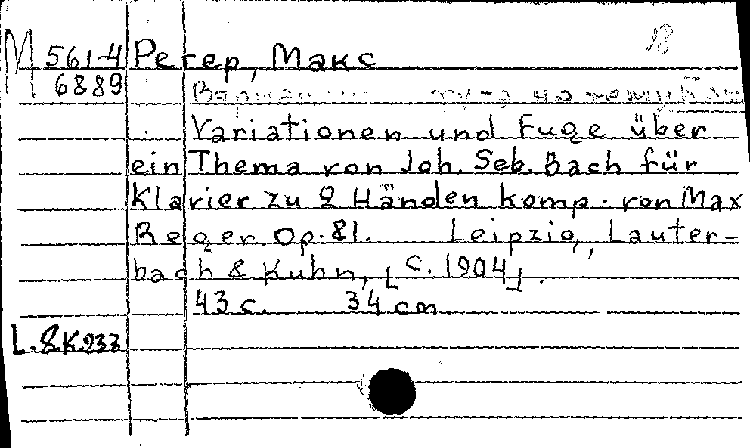 M 561-4 Регер, Макс
6889
на тему
Variationen und Fuge über
ein Thema von Joh. Seb. Bach für
Klavier zu 2 Händen komp. von Max
Reger. Op. 81. Leipzig, Lauter-
bach & Kuhn, [c. 1904].
43 c. 34 cm
L. & K. 233